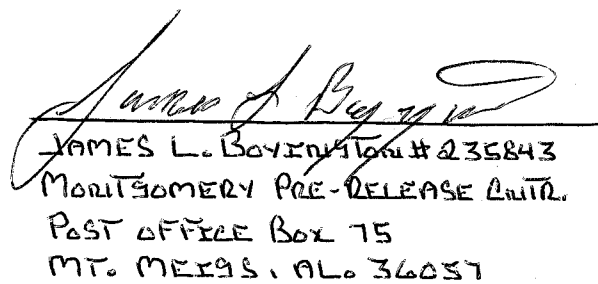 James L Boyington
JAMES L. BOYINGTON # 235843
MONTGOMERY PRE-RELEASE CNTR.
POST OFFICE BOX 75
MT. MEIGS, AL. 36057